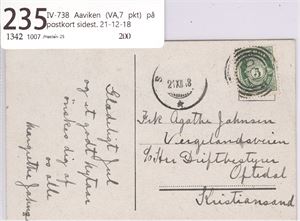 235
IV-738 Aaviken (VA,7 pkt) på
postkort sidest. 21-12-18
1342 1007 200
Glædeligt Jul
og et godt Nytaar
ønskes dig af
os alle
Margrethe
Frk Agathe Johnsen
Vergelandsveien
Driftbestyrer
Oftedal
Kristiansand
5